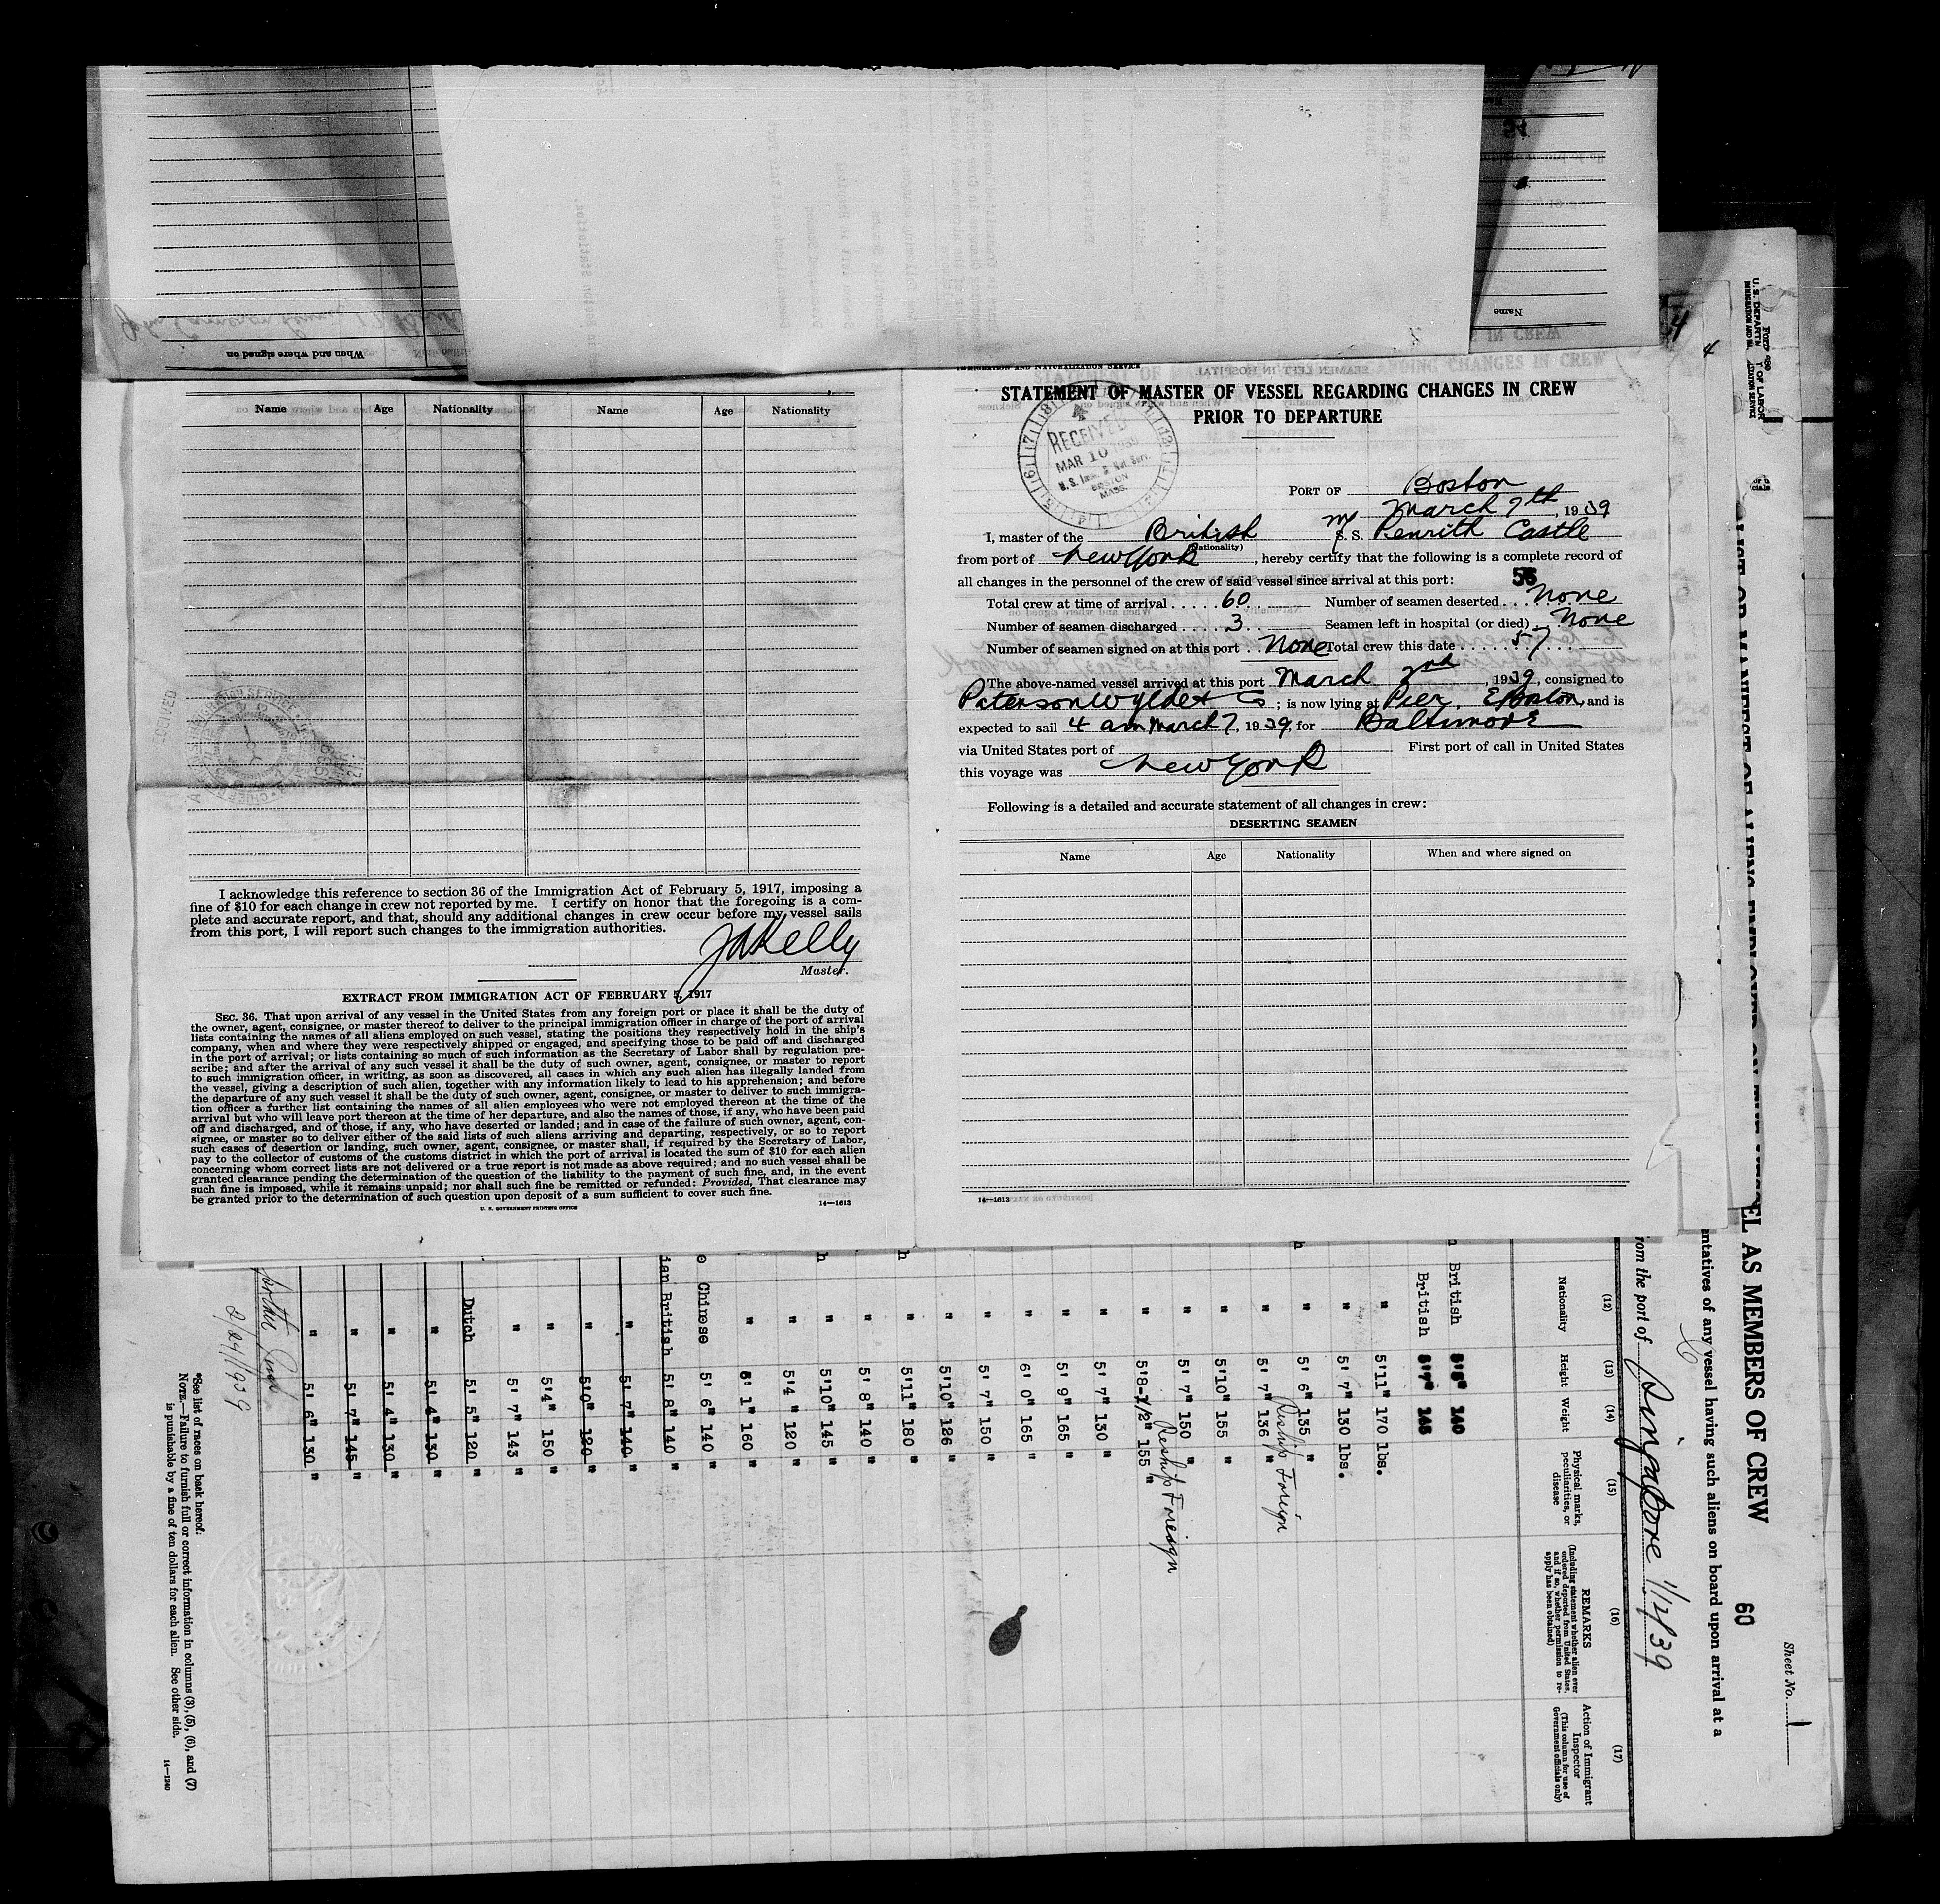 When and where signed on
Name
STATEMENT OF MASTER OF VESSEL REGARDING CHANGES IN CREW
PRIOR TO DEPARTURE
RECEIVED
MAR 10 1939
U.S. Imm. & Nat. Serv.
BOSTON
MASS.
PORT OF Boston
March 7th, 1939
I, master of the British M/S. S. Penrith Castle
(Nationality)
from port of New York, hereby certify that the following is a complete record of
all changes in the personnel of the crew of said vessel since arrival at this port:
Total crew at time of arrival 60 Number of seamen deserted None
Number of seamen discharged 3 Seamen left in hospital (or died) None
Number of seamen signed on at this port None Total crew this date 57
The above-named vessel arrived at this port March 2nd, 1939, consigned to
Paterson Wylde & Co; is now lying at Pier, E Boston, and is
expected to sail 4 am March 7, 1939, for Baltimore
via United States port of First port of call in United States
this voyage was New York
Following is a detailed and accurate statement of all changes in crew:
DESERTING SEAMEN
Name Age Nationality When and where signed on
14—1613
Name Age Nationality Name Age Nationality
I acknowledge this reference to section 36 of the Immigration Act of February 5, 1917, imposing a
fine of $10 for each change in crew not reported by me. I certify on honor that the foregoing is a com-
plete and accurate report, and that, should any additional changes in crew occur before my vessel sails
from this port, I will report such changes to the immigration authorities.
JA Kelly
Master.
EXTRACT FROM IMMIGRATION ACT OF FEBRUARY 5, 1917
SEC. 36. That upon arrival of any vessel in the United States from any foreign port or place it shall be the duty of
the owner, agent, consignee, or master thereof to deliver to the principal immigration officer in charge of the port of arrival
lists containing the names of all aliens employed on such vessel, stating the positions they respectively hold in the ship's
company, when and where they were respectively shipped or engaged, and specifying those to be paid off and discharged
in the port of arrival; or lists containing so much of such information as the Secretary of Labor shall by regulation pre-
scribe; and after the arrival of any such vessel it shall be the duty of such owner, agent, consignee, or master to report
to such immigration officer, in writing, as soon as discovered, all cases in which any such alien has illegally landed from
the vessel, giving a description of such alien, together with any information likely to lead to his apprehension; and before
the departure of any such vessel it shall be the duty of such owner, agent, consignee, or master to deliver to such immigra-
tion officer a further list containing the names of all alien employees who were not employed thereon at the time of the
arrival but who will leave port thereon at the time of her departure, and also the names of those, if any, who have been paid
off and discharged, and of those, if any, who have deserted or landed; and in case of the failure of such owner, agent, con-
signee, or master so to deliver either of the said lists of such aliens arriving and departing, respectively, or so to report
such cases of desertion or landing, such owner, agent, consignee, or master shall, if required by the Secretary of Labor,
pay to the collector of customs of the customs district in which the port of arrival is located the sum of $10 for each alien
concerning whom correct lists are not delivered or a true report is not made as above required; and no such vessel shall be
granted clearance pending the determination of the question of the liability to the payment of such fine, and, in the event
such fine is imposed, while it remains unpaid; nor shall such fine be remitted or refunded: Provided, That clearance may
be granted prior to the determination of such question upon deposit of a sum sufficient to cover such fine.
U. S. GOVERNMENT PRINTING OFFICE 14—1613
Sheet No. 1
EL AS MEMBERS OF CREW 60
ntatives of any vessel having such aliens on board upon arrival at a
rom the port of Singapore 1/2/39
(12) (13) (14) (15) (16) (17)
Nationality
Height
Weight
Physical marks, peculiarities, or disease
REMARKS
(Including statement whether alien ever ordered deported from United States, and if so, whether permission to re-apply has been obtained)
Action of Immigrant Inspector
(This column for use of Government officials only)
British 5'8" 140
British 5'7" 145
" 5'11" 170 lbs.
" 5' 7" 130 lbs.
" 5' 6" 135 "
" 5' 7" 136 " Reship Foreign
" 5'10" 155 "
" 5' 7" 150 "
" 5'8-1/2" 155 " Reship Foreign
" 5' 7" 130 "
" 5' 9" 165 "
" 6' 0" 165 "
" 5' 7" 150 "
" 5'10" 126 "
" 5'11" 180 "
" 5' 8" 140 "
" 5'10" 145 "
" 5'4 120 "
" 5' 1" 160 "
Chinese 5' 6" 140 "
ian British 5' 8" 140 "
" 5' 7" 140 "
" 5'0" 120 "
" 5'4" 150 "
" 5' 7" 143 "
Dutch 5' 5" 120 "
" 5' 4" 130 "
" 5' 4" 130 "
" 5' 7" 145 "
" 5' 6" 130 "
2/24/1939
*See list of races on back hereof.
NOTE.—Failure to furnish full or correct information in columns (3), (5), (6), and (7)
is punishable by a fine of ten dollars for each alien. See other side.
14—1240